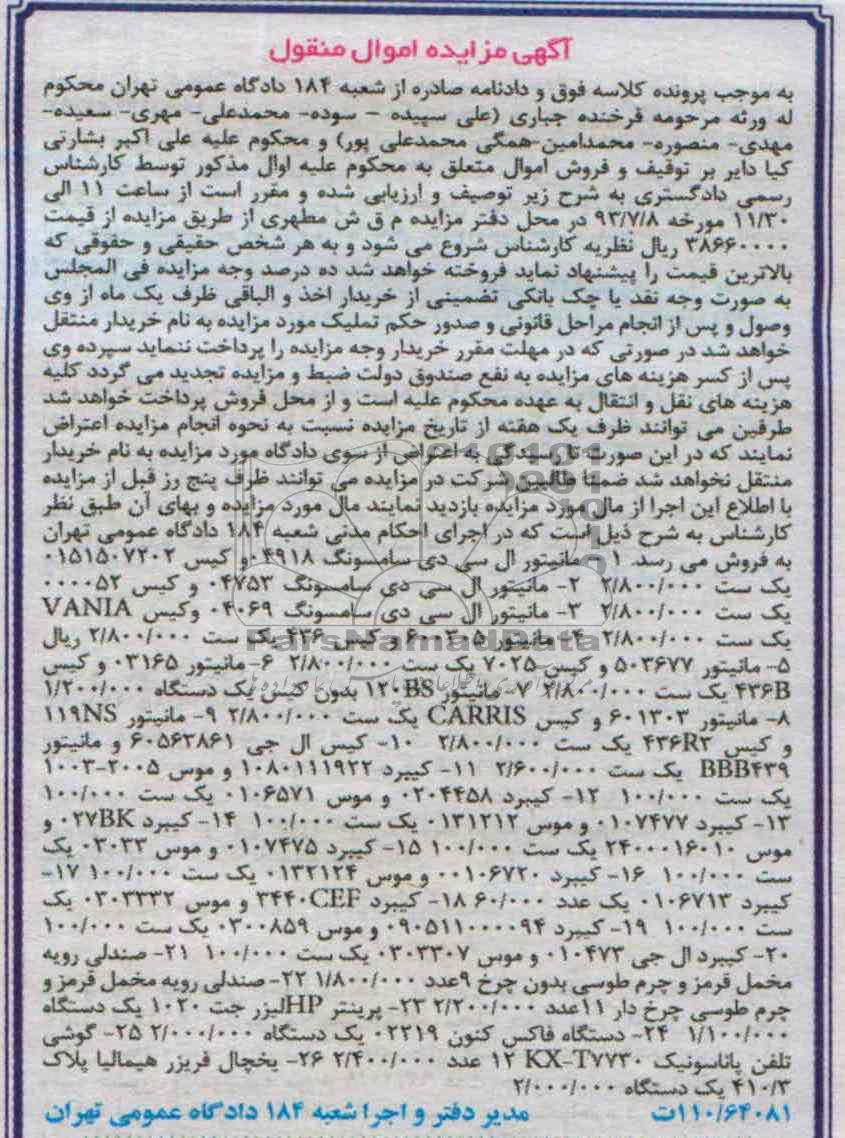 آگهی مزایده اموال منقول
به موجب پرونده کلاسه فوق و دادنامه صادره از شعبه ۱۸۴ دادگاه عمومی تهران محکوم
له ورثه مرحومه فرخنده جباری (علی سپیده – سوده- محمدعلی- مهری- سعیده-
مهدی- منصوره- محمدامین-همگی محمدعلی پور) و محکوم علیه علی اکبر بشارتی
کیا دایر بر توقیف و فروش اموال متعلق به محکوم علیه اوال مذکور توسط کارشناس
رسمی دادگستری به شرح زیر توصیف و ارزیابی شده و مقرر است از ساعت ۱۱ الی
۱۱/۳۰ مورخه ۹۳/۷/۸ در محل دفتر مزایده م ق ش مطهری از طریق مزایده از قیمت
۳۸۶۶۰۰۰۰ ریال نظریه کارشناس شروع می شود و به هر شخص حقیقی و حقوقی که
بالاترین قیمت را پیشنهاد نماید فروخته خواهد شد ده درصد وجه مزایده فی المجلس
به صورت وجه نقد یا چک بانکی تضمینی از خریدار اخذ و الباقی ظرف یک ماه از وی
وصول و پس از انجام مراحل قانونی و صدور حکم تملیک مورد مزایده به نام خریدار منتقل
خواهد شد در صورتی که در مهلت مقرر خریدار وجه مزایده را پرداخت ننماید سپرده وی
پس از کسر هزینه های مزایده به نفع صندوق دولت ضبط و مزایده تجدید می گردد کلیه
هزینه های نقل و انتقال به عهده محکوم علیه است و از محل فروش پرداخت خواهد شد
طرفین می توانند ظرف یک هفته از تاریخ مزایده نسبت به نحوه انجام مزایده اعتراض
نمایند که در این صورت تا رسیدگی به اعتراض از سوی دادگاه مورد مزایده به نام خریدار
منتقل نخواهد شد ضمنا طالبین شرکت در مزایده می توانند ظرف پنج رز قبل از مزایده
با اطلاع این اجرا از مال مورد مزایده بازدید نمایند مال مورد مزایده و بهای آن طبق نظر
کارشناس به شرح ذیل است که در اجرای احکام مدنی شعبه ۱۸۴ دادگاه عمومی تهران
به فروش می رسد. ۱ - مانیتور ال سی دی سامسونگ ۰۴۹۱۸و کیس ۰۱۵۱۵۰۷۲۰۲
یک ست ۲/۸۰۰/۰۰۰ ۲- مانیتور ال سی دی سامسونگ ۰۴۷۵۳ و کیس ۰۰۰۰۵۲
یک ست ۲/۸۰۰/۰۰۰ ۳- مانیتور ال سی دی سامسونگ ۰۴۰۶۹ وکیس VANIA
یک ست ۲/۸۰۰/۰۰۰ ۴- مانیتور ۶۰۰۳۰۵ و کیس ۴۳۶ یک ست ۲/۸۰۰/۰۰۰ ریال
۵- مانیتور ۵۰۳۶۷۷ و کیس ۷۰۲۵ یک ست ۲/۸۰۰/۰۰۰ ۶-مانیتور ۰۳۱۶۵ و کیس
۴۳۶B یک ست ۲/۸۰۰/۰۰۰ ۷- مانیتور ۱۲۰BS بدون کیس یک دستگاه ۱/۲۰۰/۰۰۰
۸- مانیتور ۶۰۱۳۰۳ و کیس CARRIS یک ست ۲/۸۰۰/۰۰۰ ۹- مانیتور ۱۱۹NS
و کیس ۴۳۶R۳ یک ست ۲/۸۰۰/۰۰۰ ۱۰- کیس ال جی ۶۰۵۶۳۸۶۱ و مانیتور
BBB۴۳۹ یک ست ۲/۶۰۰/۰۰۰ ۱۱- کیبرد ۱۰۸۰۱۱۱۹۲۲ و موس ۲۰۰۵-۱۰۰۳
یک ست ۱۰۰/۰۰۰ ۱۲- کیبرد ۰۲۰۴۴۵۸ و موس ۰۱۰۶۵۷۱ یک ست ۱۰۰/۰۰۰
۱۳- کیبرد ۰۱۰۷۴۷۷ و موس ۰۱۳۱۲۱۲ یک ست ۱۰۰/۰۰۰ ۱۴- کیبرد ۰۲۷BK و
موس ۲۴۰۰۰۱۶۰۱۰ یک ست ۱۰۰/۰۰۰ ۱۵- کیبرد ۰۱۰۷۴۷۵ و موس ۰۳۰۳۳ یک
ست ۱۰۰/۰۰۰ ۱۶- کیبرد ۰۰۱۰۶۷۲۰ و موس ۰۱۳۲۱۲۴ یک ست ۱۰۰/۰۰۰ ۱۷-
کیبرد ۰۱۰۶۷۱۳ یک عدد ۶۰/۰۰۰ ۱۸- کیبرد ۳۴۴۰CEF و موس ۰۳۰۳۳۳۲ یک
ست ۱۰۰/۰۰۰ ۱۹- کیبرد ۰۹۰۵۱۱۰۰۰۰۹۴ و موس ۰۳۰۰۸۵۹ یک ست ۱۰۰/۰۰۰
۲۰- کیبرد ال جی ۰۱۰۴۷۳ و موس ۰۳۰۳۳۰۷ یک ست ۱۰۰/۰۰۰ ۲۱- صندلی رویه
مخمل قرمز و چرم طوسی بدون چرخ ۹عدد ۱/۸۰۰/۰۰۰ ۲۲- صندلی رویه مخمل قرمز و
چرم طوسی چرخ دار ۱۱عدد ۲/۲۰۰/۰۰۰ ۲۳- پرینتر HPلیزر جت ۱۰۲۰ یک دستگاه
۱/۱۰۰/۰۰۰ ۲۴- دستگاه فاکس کنون ۰۲۲۱۹ یک دستگاه ۲/۰۰۰/۰۰۰ ۲۵- گوشی
تلفن پاناسونیک KX-T۷۷۳۰ ۱۲ عدد ۲/۴۰۰/۰۰۰ ۲۶- یخچال فریزر هیمالیا پلاک
۴۱۰/۳ یک دستگاه ۲/۰۰۰/۰۰۰
۱۱۰/۶۴۰۸۱ت مدیر دفتر و اجرا شعبه ۱۸۴ دادگاه عمومی تهران
ParsNamadData